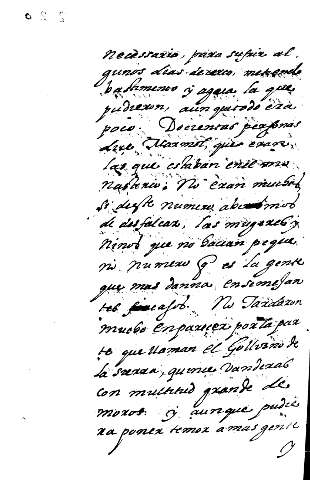 necessario, para sufrir al
gunos dias de cerco, metiendo
bastimento y agua la que
pudieron, aunque todo era
poco. Docientas personas
dice Marmol, que eran
las que estaban en el
No eran muchos
si deste numero abemos
de desfalcar, las mugeres y
niños que no hacian peque
no numero q es la gente
que mas danna en semejan
tes casos. No Tardaron
mucho en parecer por la par
te que llaman el Gollizno de
la sierra, quince Vanderas
con multitud grande de
moros. y aunque pudie
ra poner temor a mas gente
y